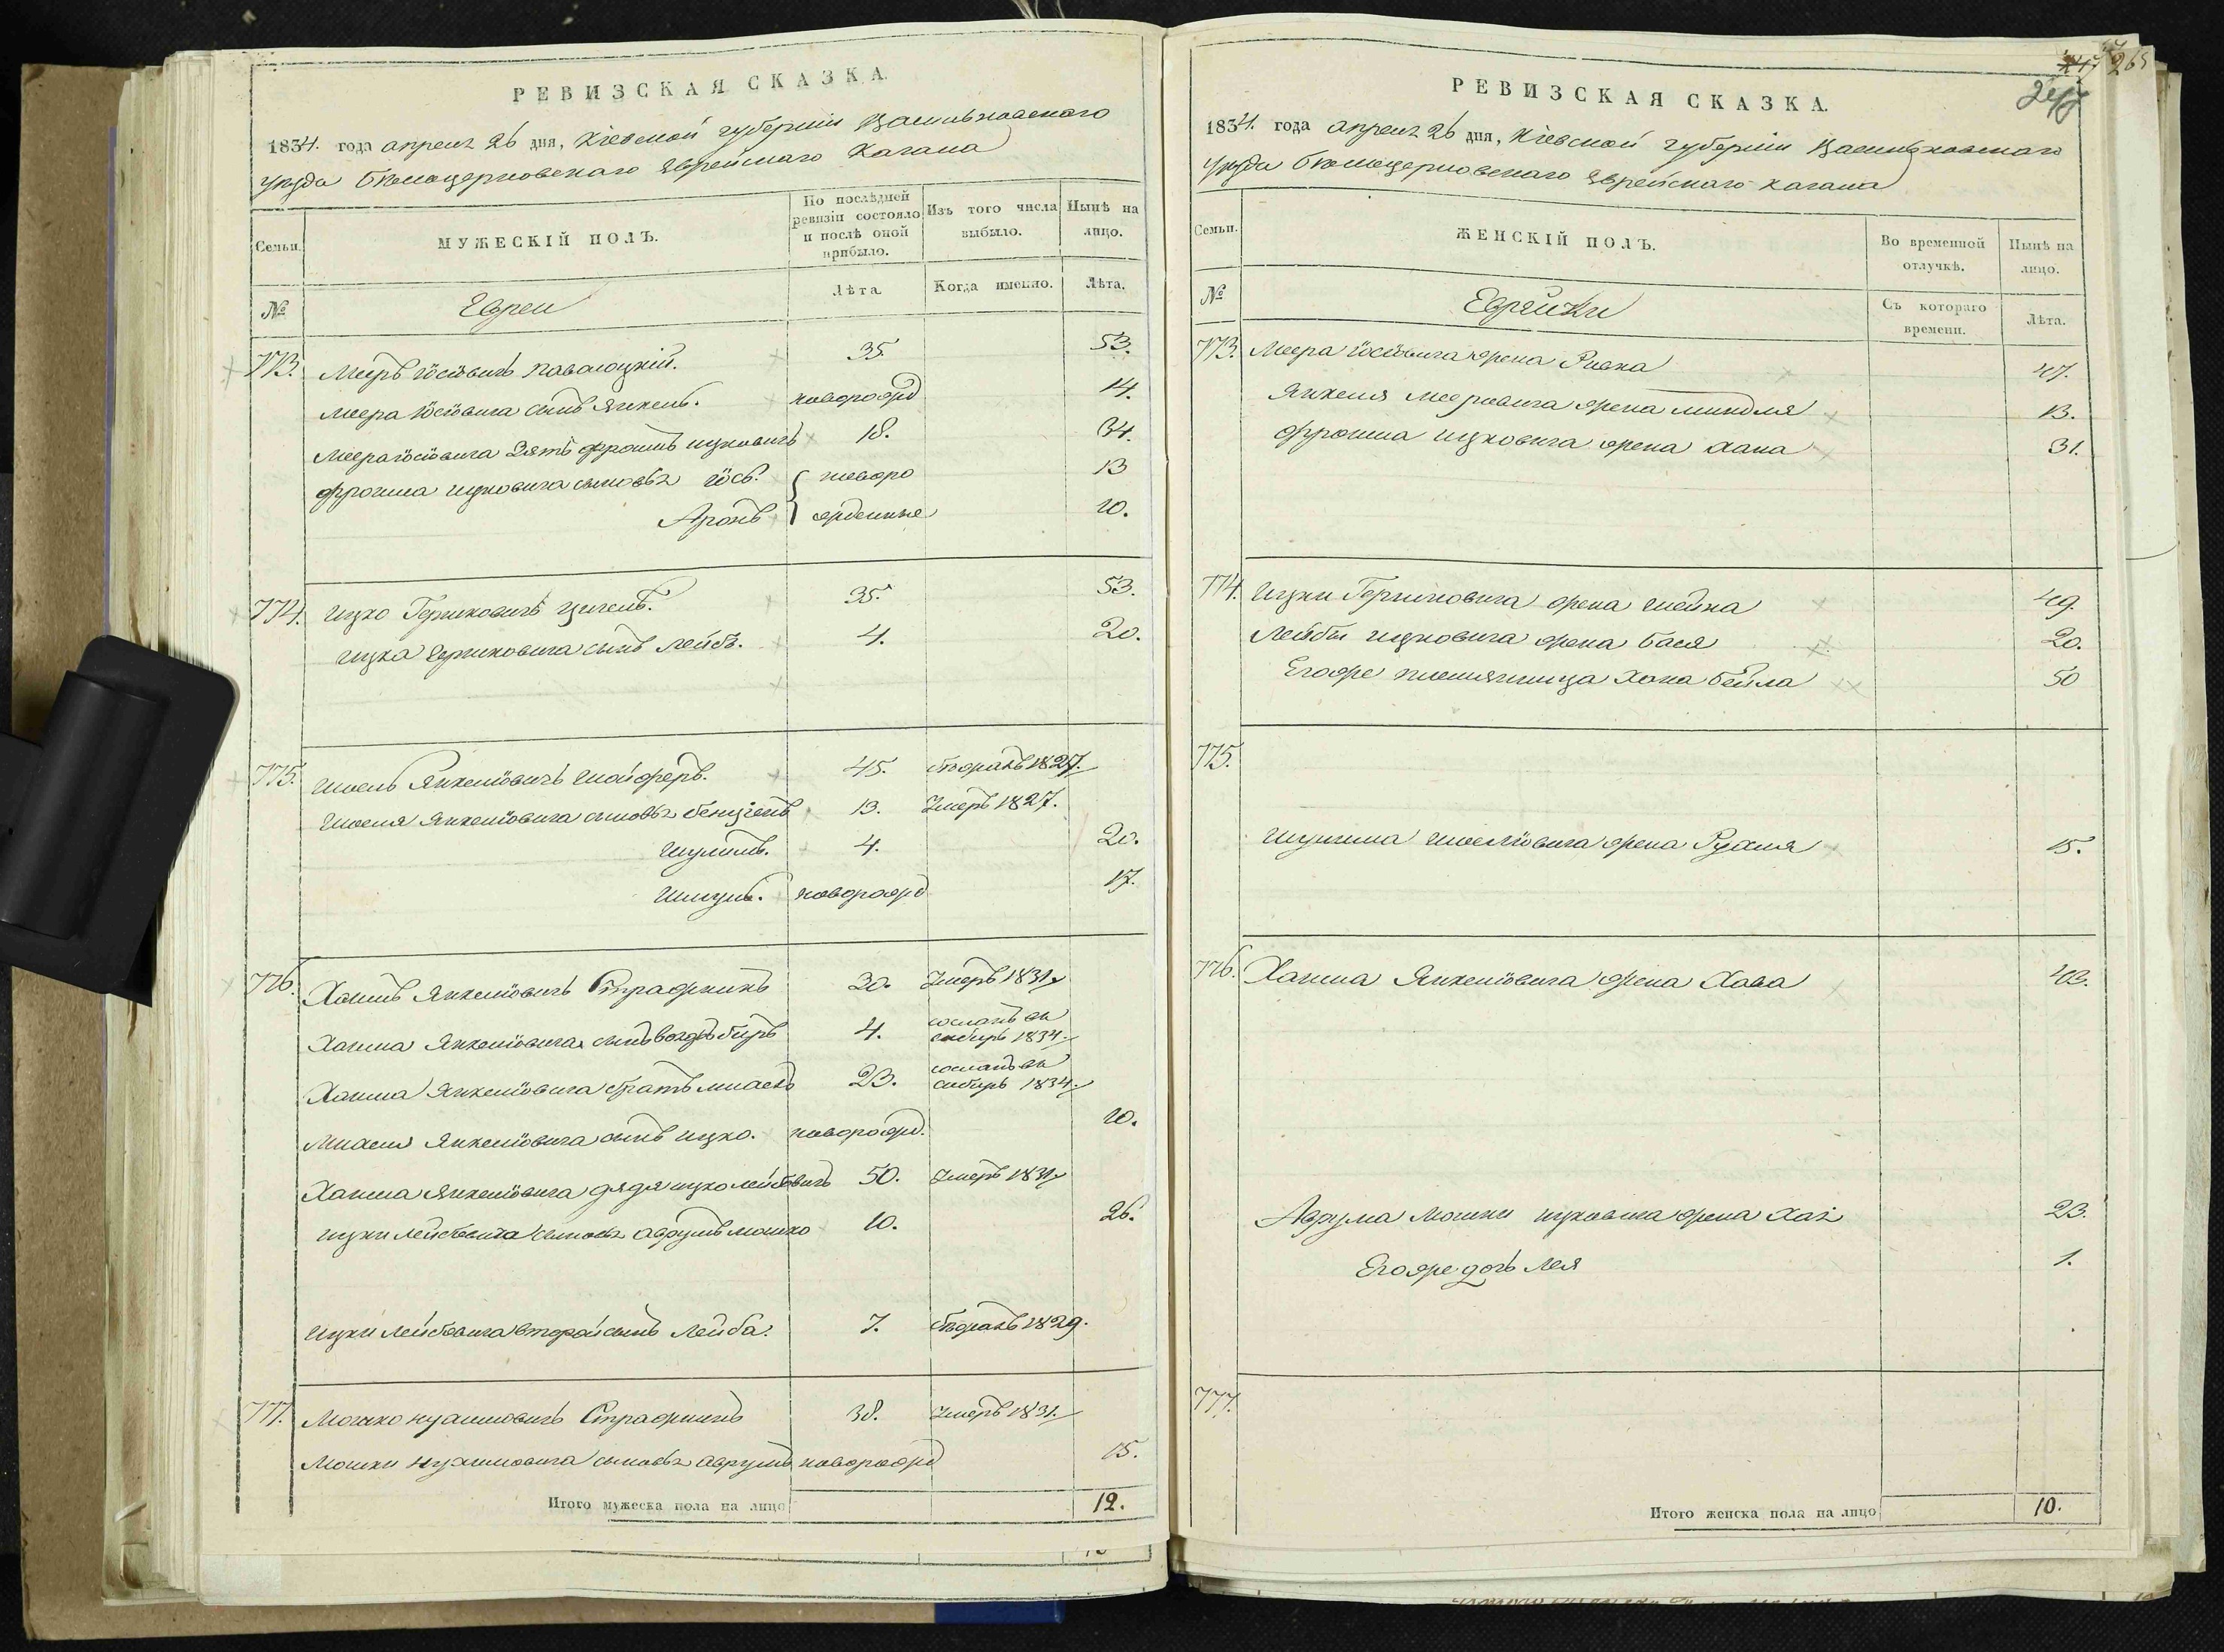 РЕВИЗСКАЯ СКАЗКА.
1834. года апреля 26 дня, Кіевской губерніи Васильковскаго
уезда Белоцерковскаго Еврейскаго Кагала
Семьи. МУЖЕСКІЙ ПОЛЪ. По послѣдней ревизіи состояло и послѣ оной прибыло. Изъ того числа выбыло. Нынѣ на лицо.
№ Евреи Лѣта. Когда именно. Лѣта.
773. Мееръ Іосіовичъ Паволоцкій. 35. 53.
Меера Іосіовича сынъ Янкель. новорожд 14.
Меера Іосіовича Зять Фроимъ Ицковичъ 18. 34.
Фроима Ицковича сыновья Іось. новоро 13
Аронъ жденные 10.
774. Ицко Гершковичъ 35. 53.
Ицка Гершковича сынъ Лейба. 4. 20.
775. Шоель Янкеліовичъ Шойферъ. 45. бежалъ 1827.
Шоеля Янкеліовича сыновья Бенціонъ 13. Умеръ 1827.
Шулимъ. 4. 20.
Шмуль. новорожд 17.
776. Хаимъ Янкеліовичъ Стражникъ 30. Умеръ 1831
Хаима Янкеліовича сынъ 4. сосланъ въ сибирь 1834.
Хаима Янкеліовича братъ Михель 23. сосланъ въ сибирь 1834.
Михеля Янкеліовича сынъ Ицко. новорожд. 10.
Хаима Янкеліовича дядя Ицко Лейбовичъ 50. Умеръ 1831
Ицки Лейбовича сыновья Аврумъ Мошко 10. 26.
Ицки Лейбовича второй сынъ Лейба. 7. бежалъ 1829.
777. Мошко Нухимовичъ Стражникъ 38. Умеръ 1831.
Мошки Нухимовича сыновья Аврумъ новорожд 15.
Итого мужеска пола на лицо 12.
265
247
РЕВИЗСКАЯ СКАЗКА.
1834. года апреля 26 дня, Кіевской губерніи Васильковскаго
уезда Белоцерковскаго Еврейскаго Кагала
Семьи. ЖЕНСКІЙ ПОЛЪ. Во временной отлучкѣ. Нынѣ на лицо.
№ Еврейки Съ котораго времени. Лѣта.
773. Меера Іосіовича жена Ривка 47.
Янкеля Мееровича жена Миндля 13.
Фроима Ицковича жена Хана 31.
774. Ицки Гершковича жена Шейна 49.
Лейбы Ицковича жена Бася 20.
Егоже племянница Хана Бейла 50
775.
Шулима Шоеліовича жена Рухля 15.
776. Хаима Янкеліовича жена Хава 43.
Аврума Мошки Ицковича жена Хая 23.
Егоже дочь Лея 1.
777.
Итого женска пола на лицо 10.